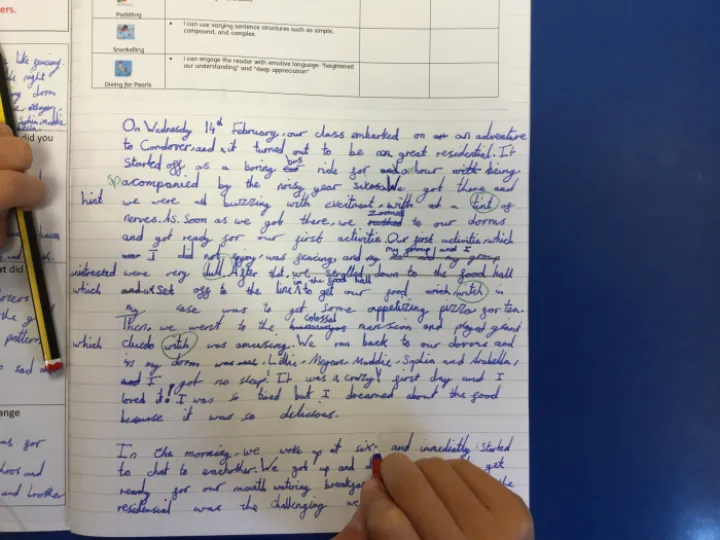 ers.
Paddling
• I can use varying sentence structures such as simple, compound, and complex.
Snorkelling
• I can engage the reader with emotive language. "heightened our understanding" and "deep appreciation"
Diving for Pearls
like fencing.
right
dorm
did you
at did
the g
pattern
so sad
ange
as for
and
and brother
On Wednesday 14th February, our class embarked on an adventure
to Condover, and it turned out to be a great residential. It
started off as a boring bus ride for a hour with being
sp acompanied by the noisy year sixes. We got there and
hint we were all buzzing with excitment, with at a tint of
nerves. As soon as we got there, we zoomed to our dorms
and got ready for our first activities. Our first activitie, which
I did not enjoy, was fencing and my group and I
intrested were very dull. After that, we scrolled down to the food hall
which set off to the line in the food hall to get our food wich witch in
my case was to get some appetizing pizza for tea.
Then, we went to the colossal mansion and played giant
which cluedo witch was amusing. We ran back to our dorms and
in my dorm was Lillie, Megan, Maddie, Sophia and Arabella,
and I got no sleep! It was a crazy first day and I
loved it! I was so tired but I dreamed about the food
because it was so delicious.
In the morning, we woke up at six and immediatly started
to chat to eachother. We got up and get
ready for our mouth watering the
residensial was the challenging